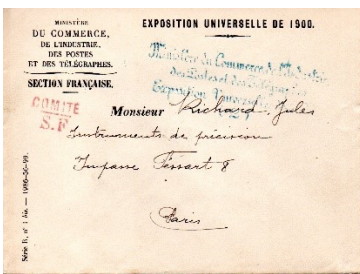 MINISTÈRE
DU COMMERCE,
DE L'INDUSTRIE,
DES POSTES
ET DES TÉLÉGRAPHES.
SECTION FRANÇAISE.
EXPOSITION UNIVERSELLE DE 1900.
Ministère du Commerce de l'Industrie
des Postes et des Télégraphes
Exposition Universelle
COMITÉ
S.F
Monsieur Richard Jules
Instruments de précision
Impasse Fessart 8
Paris
Série B, n° 1 bis.